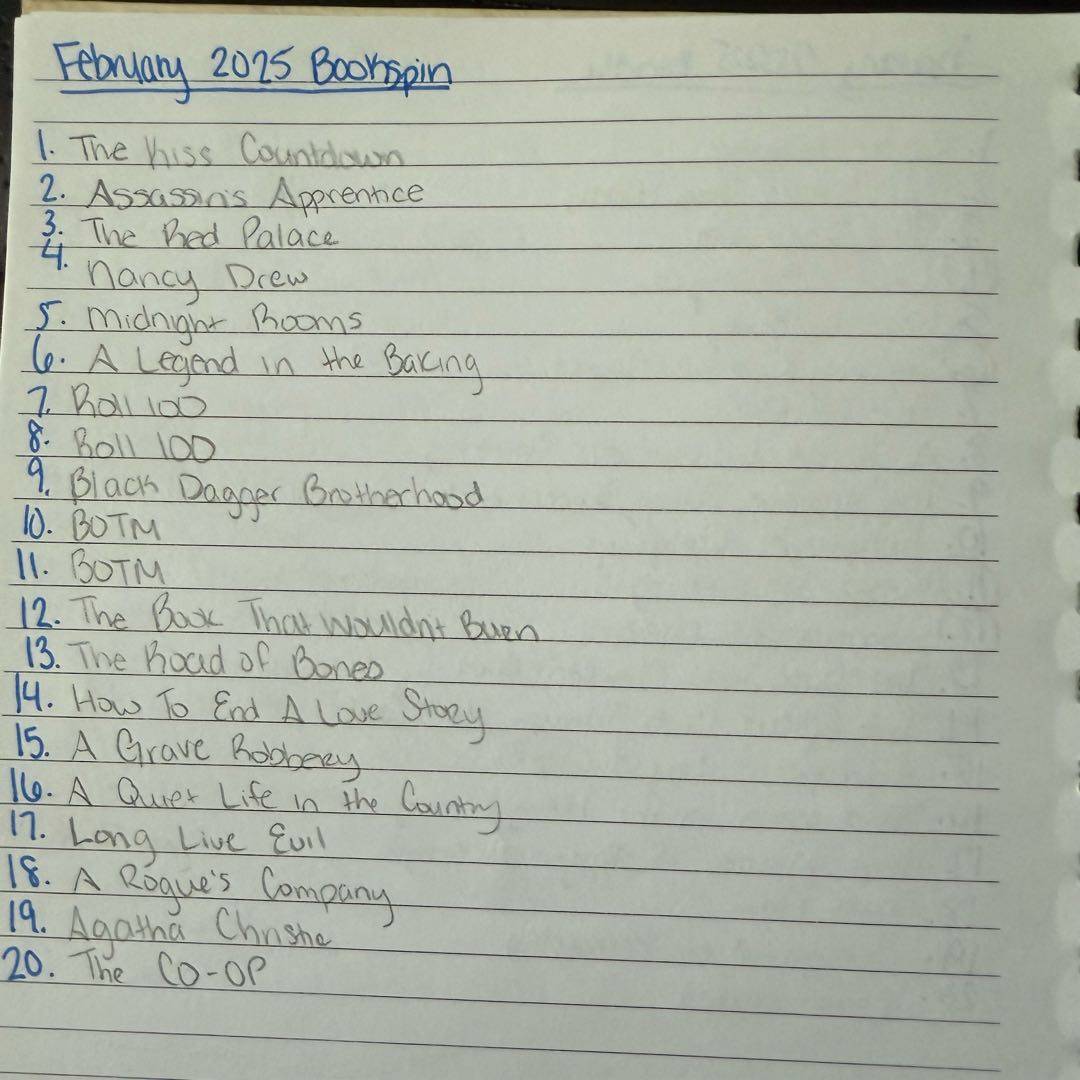 February 2025 Bookspin
1. The Kiss Countdown
2. Assassin's Apprentice
3. The Red Palace
4. Nancy Drew
5. Midnight Rooms
6. A Legend in the Baking
7. Roll 100
8. Roll 100
9. Black Dagger Brotherhood
10. BOTM
11. BOTM
12. The Book That Wouldn't Burn
13. The Road of Bones
14. How To End A Love Story
15. A Grave Robbery
16. A Quiet Life in the Country
17. Long Live Evil
18. A Rogue's Company
19. Agatha Christie
20. The CO-OP